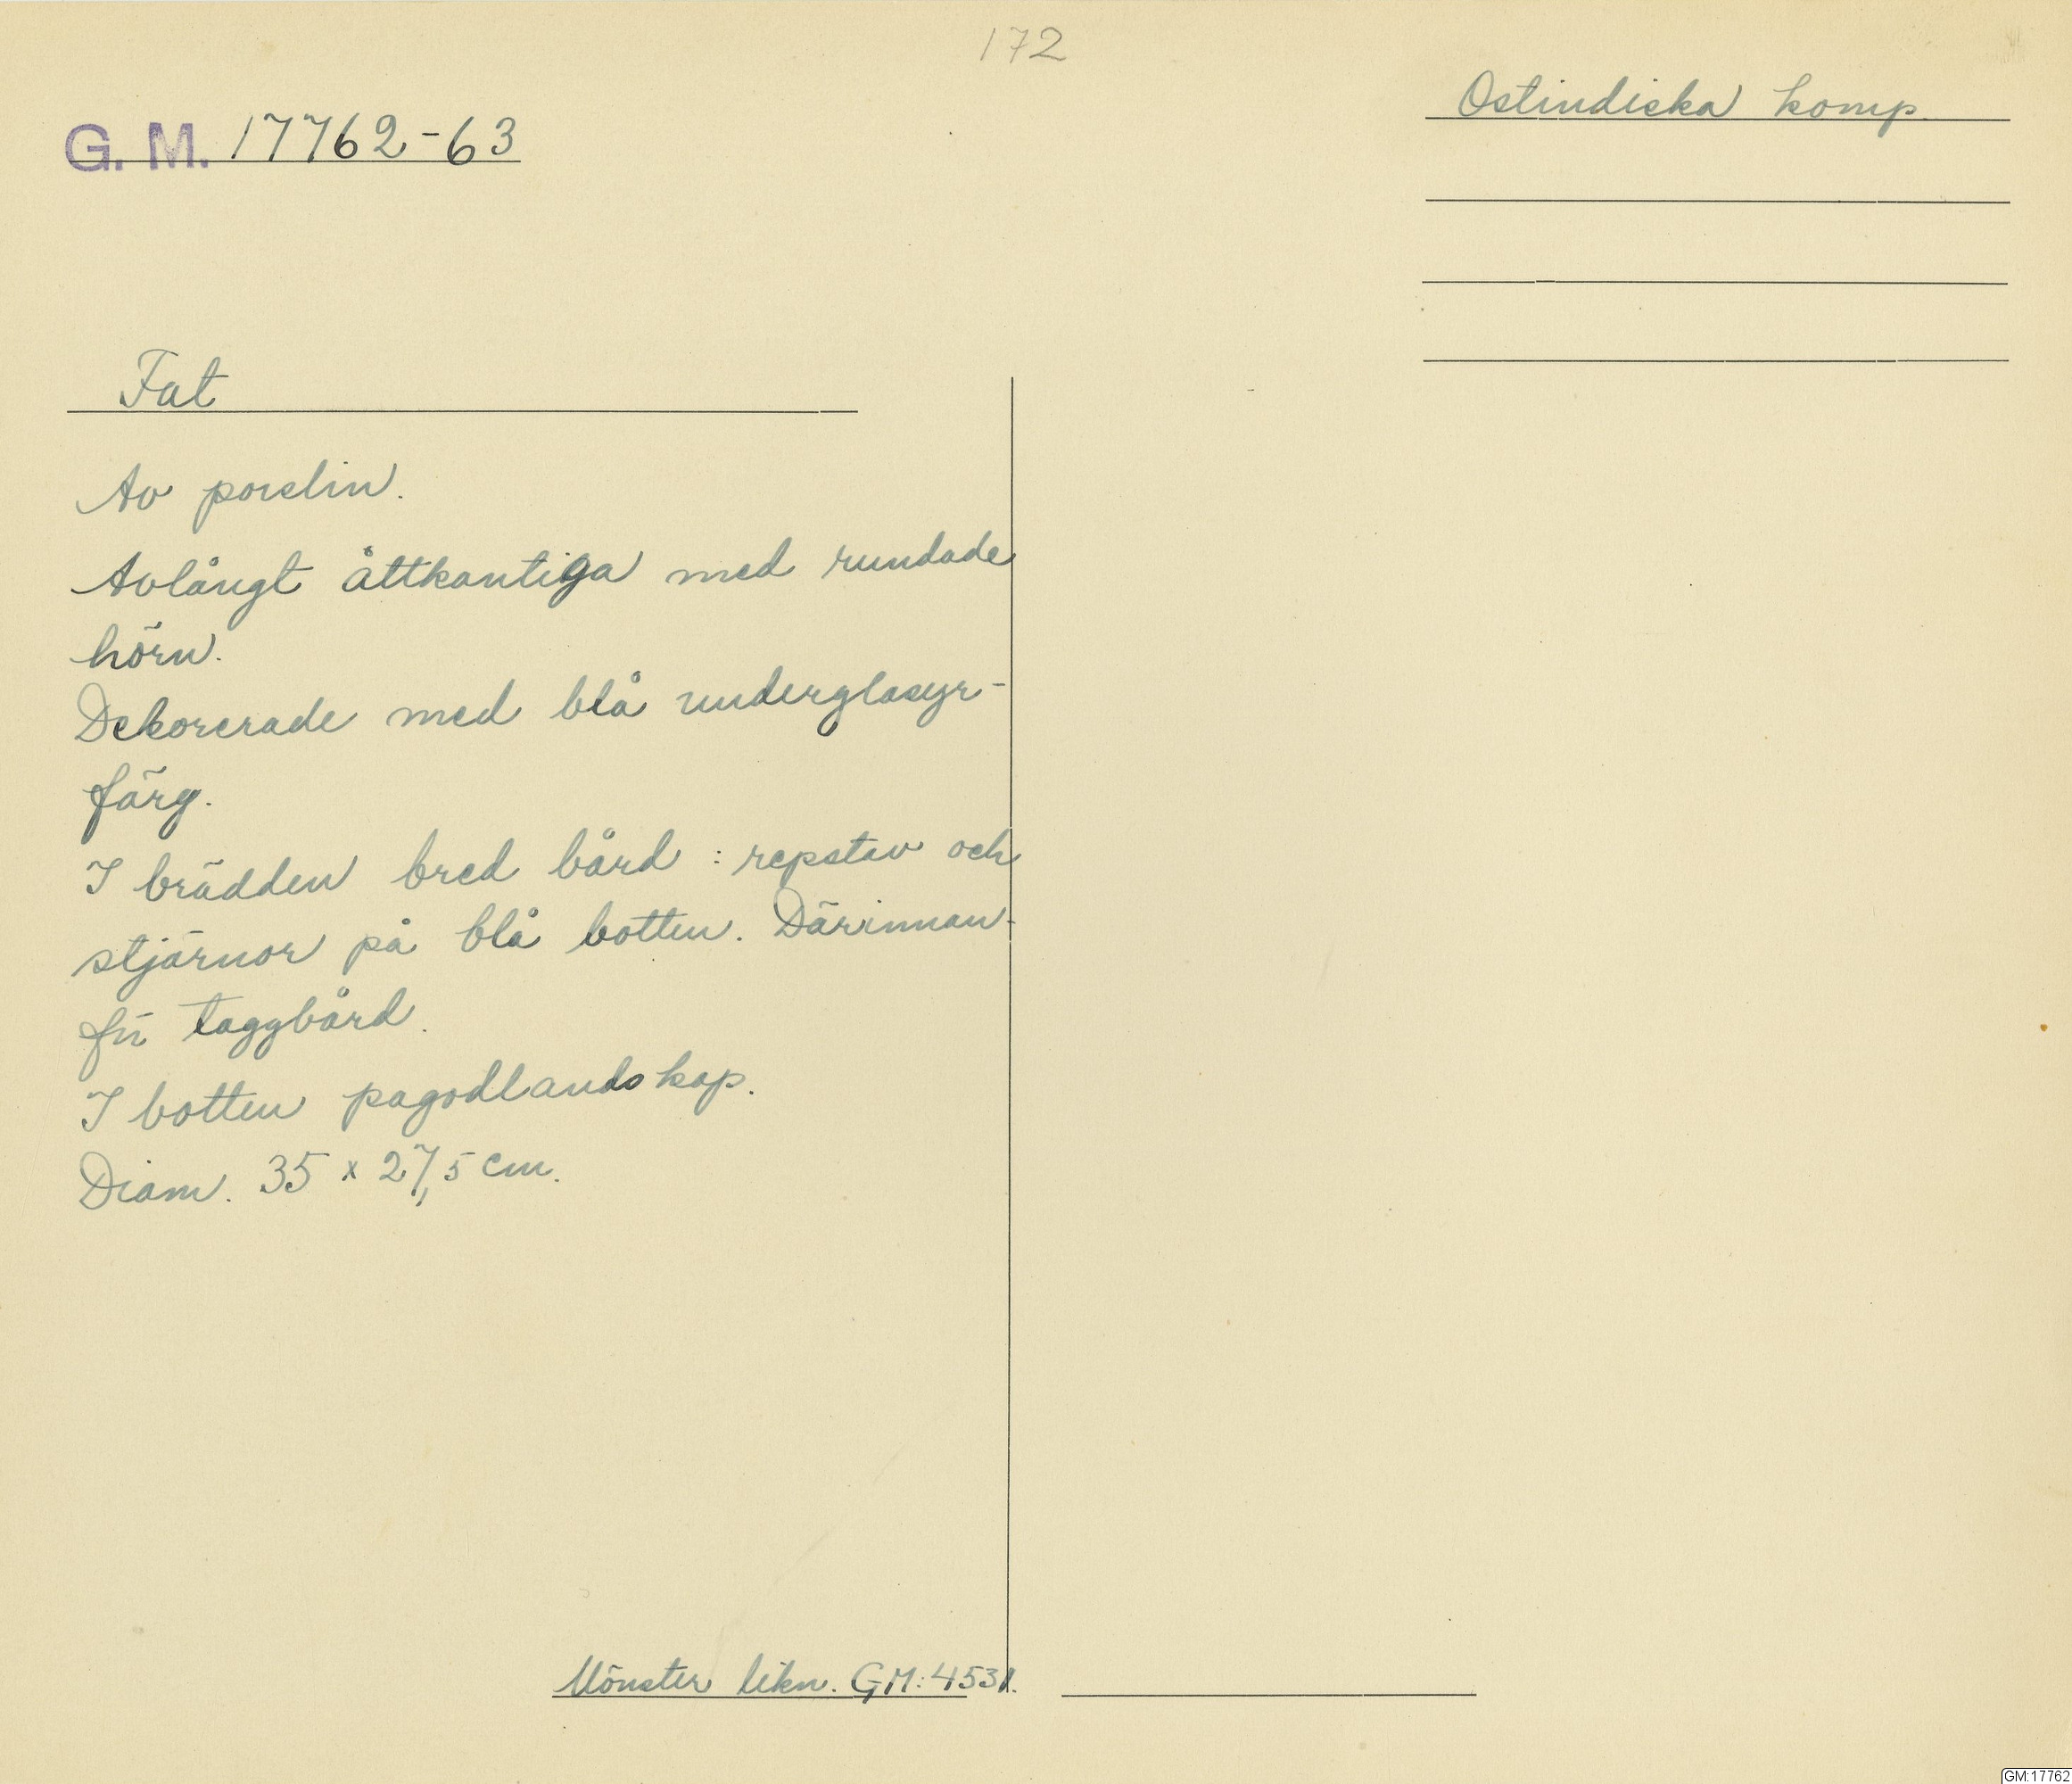 172
Ostindiska komp.
G. M. 17762-63
Fat
Av porslin.
Avlångt åttkantiga med rundade
hörn.
Dekorerade med blå underglasyr-
färg.
I brädden bred bård : repstav och
stjärnor på blå botten. Därinnan-
för taggbård.
I botten pagodlandskap.
Diam. 35 x 27,5 cm.
Mönster likn. GM: 4531.
GM:17762